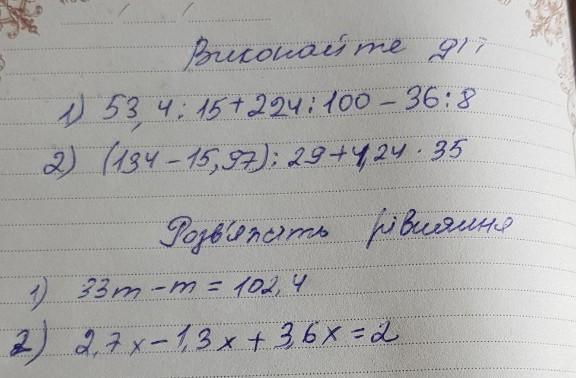 Виконайте дії
1) 53,4 : 15 + 224 : 100 - 36 : 8
2) (134 - 15,97) : 29 + 4,24 · 35
Розв'яжіть рівняння
1) 33m - m = 102,4
2) 2,7x - 1,3x + 3,6x = 2